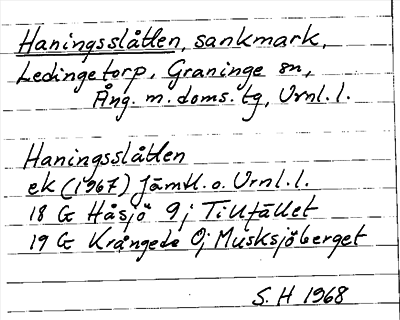 Haningsslåtten, sankmark,
Ledingetorp, Graninge sn,
Ång. m. doms. tg, Vrnl. l.
Haningsslåtten
ek (1967) Jämtl. o. Vrnl. l.
18 G Håsjö 9 j Tillfället
19 G Krångede 0j Musksjöberget
S. H 1968